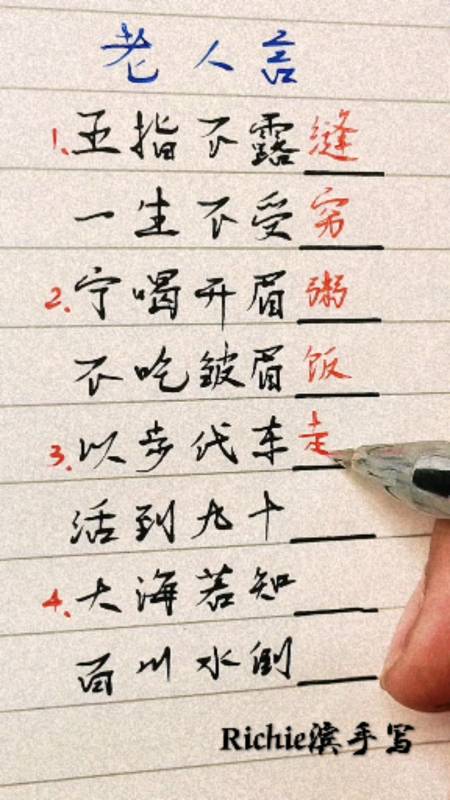 老人言
1、五指不露缝
一生不受穷
2、宁喝开眉粥
不吃皱眉饭
3、以步代车走
活到九十
4、大海若知
百川水倒
Richie滨手写